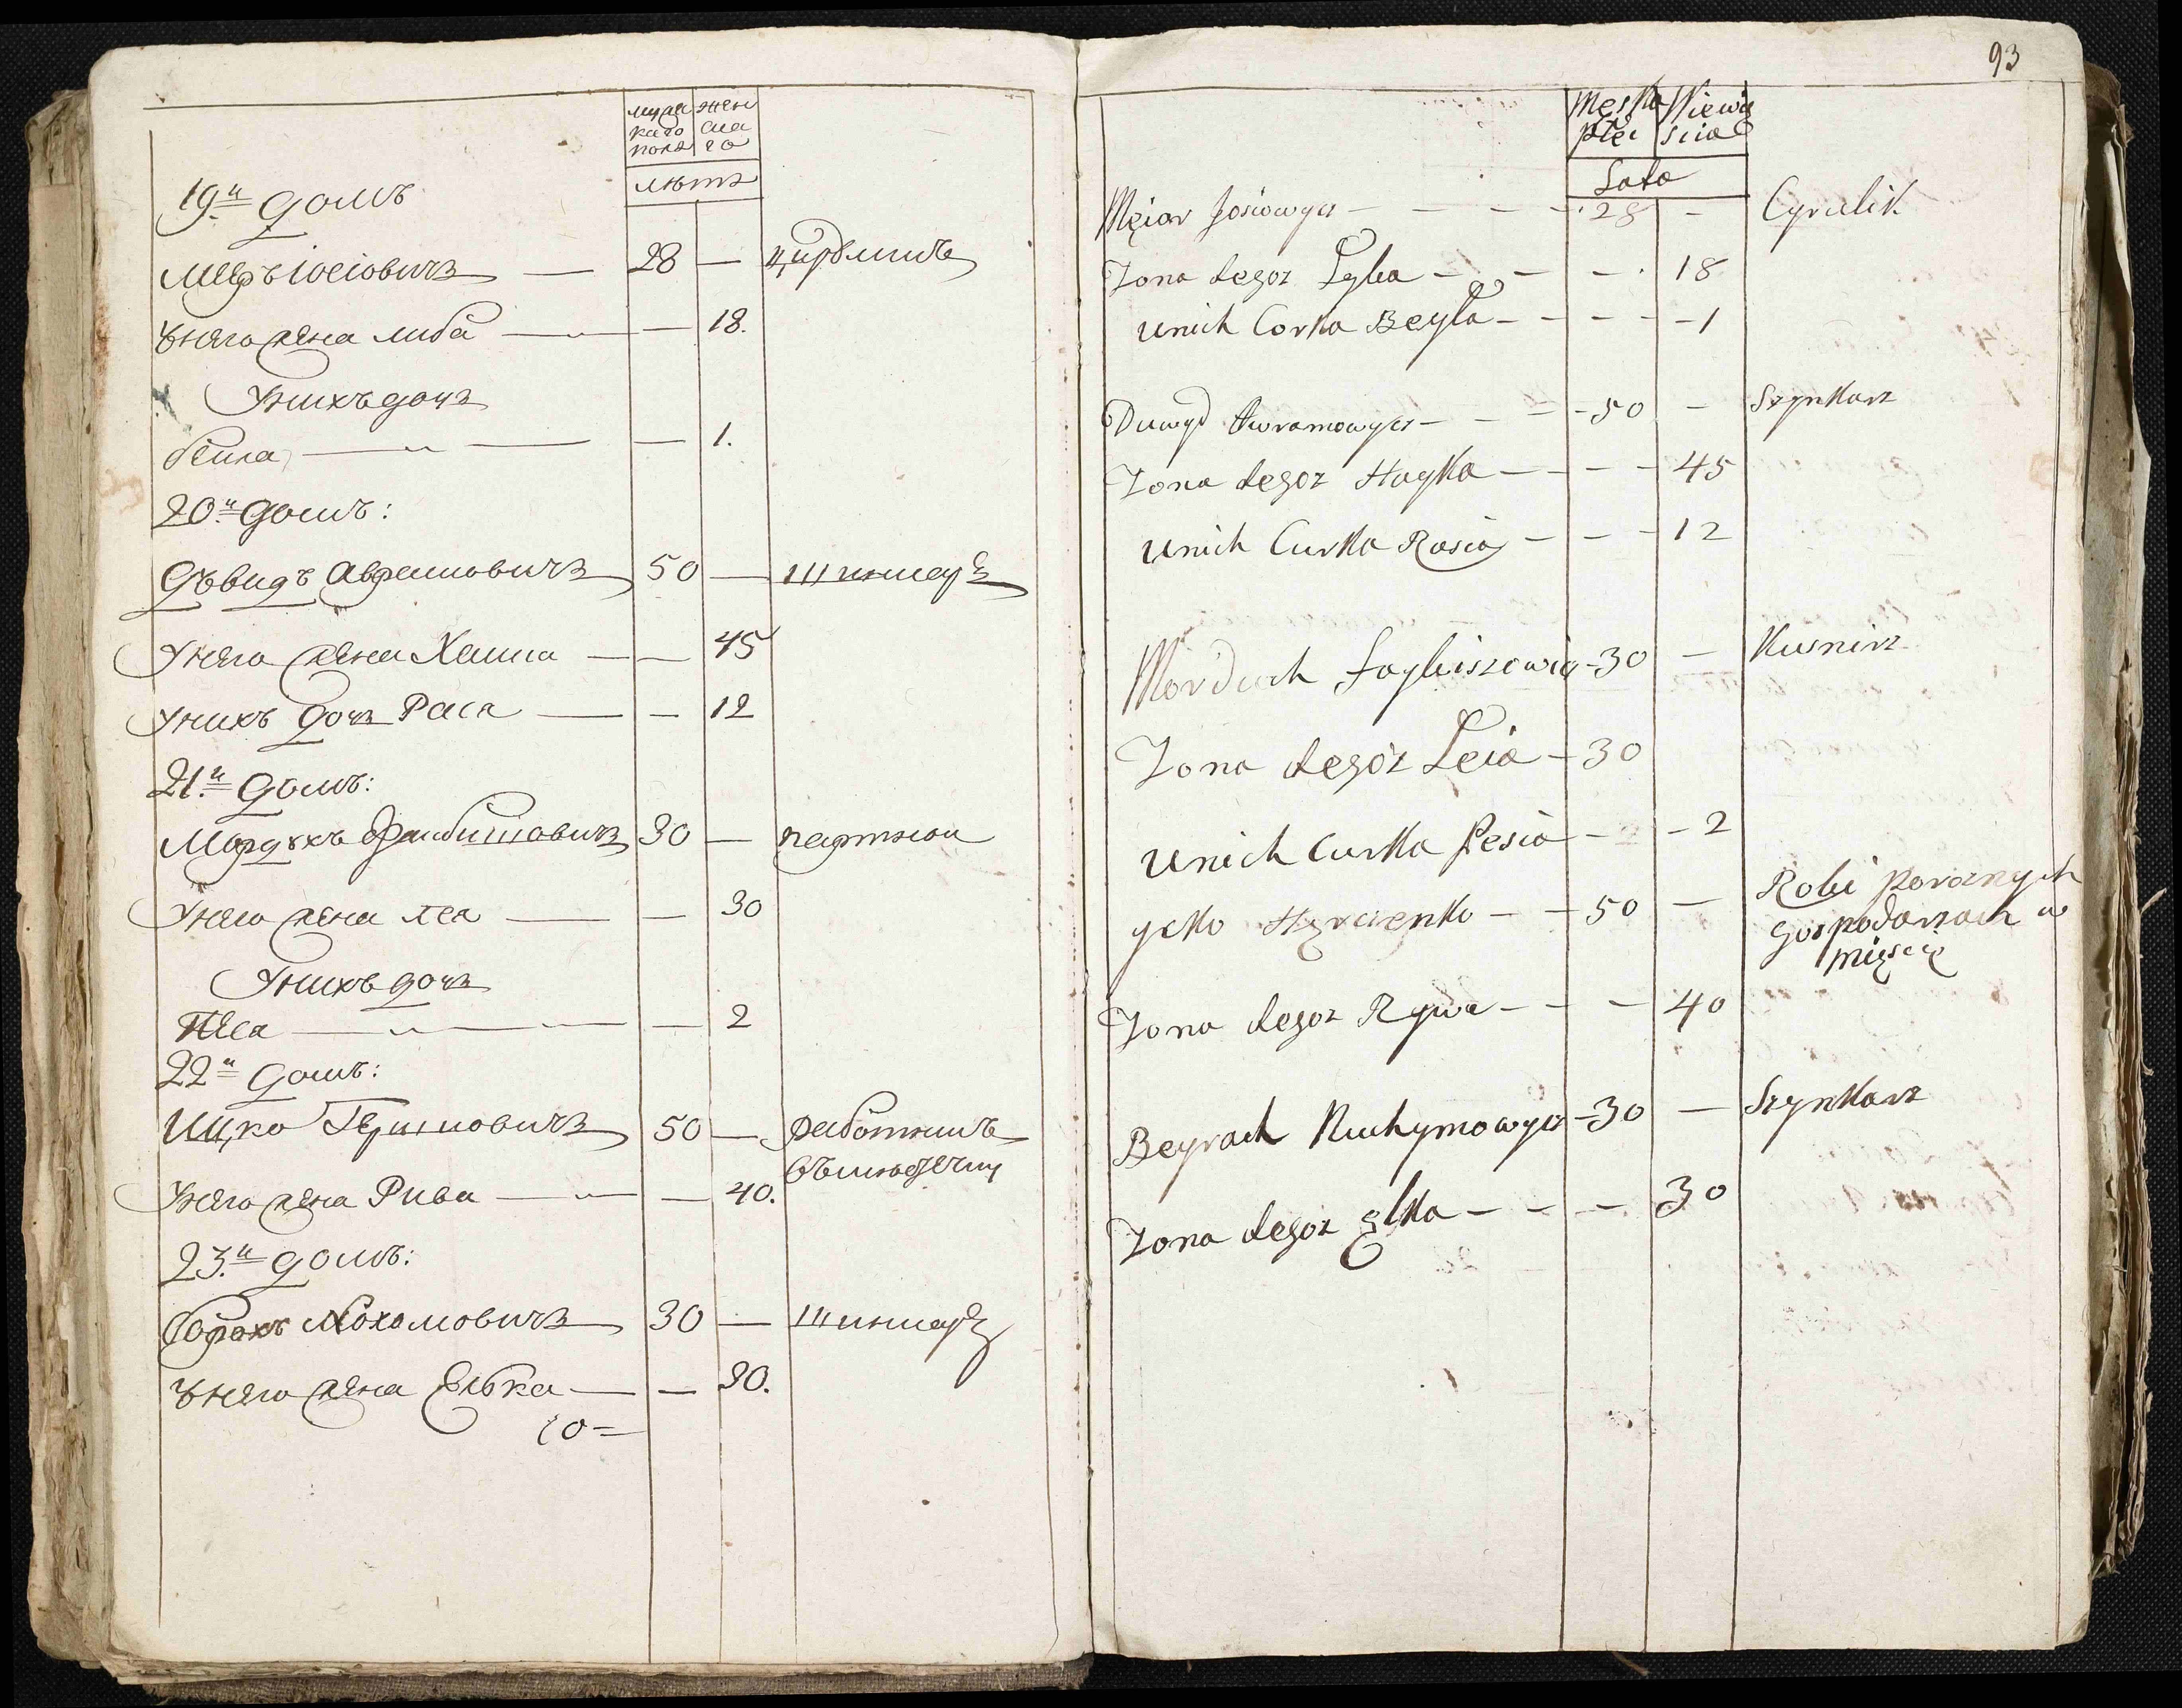 мужескаго пола | женскаго
лѣтъ
19й домъ
Меер іосіовичъ — 28 — цырулникъ
Унего жена либа — — 18.
Унихъ дочъ
беила — — 1.
20й домъ:
Дувидъ Аврамовичъ 50 — шинкаръ
Унего жена Хаика — — 45
Унихъ дочъ Рася — — 12
21й домъ:
Мордухъ Фаибишовичъ 30 — партнои
Унего жена лея — — 30
Унихъ дочъ
Песя — — 2
22й домъ:
Ицко 50 — работникъ
Унего жена Рива — — 40.
23й домъ:
Борохъ Нохомовичъ 30 — шинкаръ
Унего жена Елька — — 30.
10=
93
Męska płei | Niewiescia
Lata
Męiar Josiowycz — 28 — Cyrulik
Zona tegoz Lyba — — 18
unich Corka Beyla — — 1
Duwyd Awramowycz — 50 — Szynkarz
Zona tegoz Hayka — — 45
unich Curka Rasia — — 12
Morduch Faybiszowicz 30 — Kusnirz
Zona tegoz Leia — 30
unich Curka Pesia — — 2
ycko — 50 — Robi poroznych
gospodarzach w
mięscie
Zona tegoz Rywa — — 40
Beyrach Nuchymowycz 30 — Szynkarz
Zona tegoz Elka — — 30